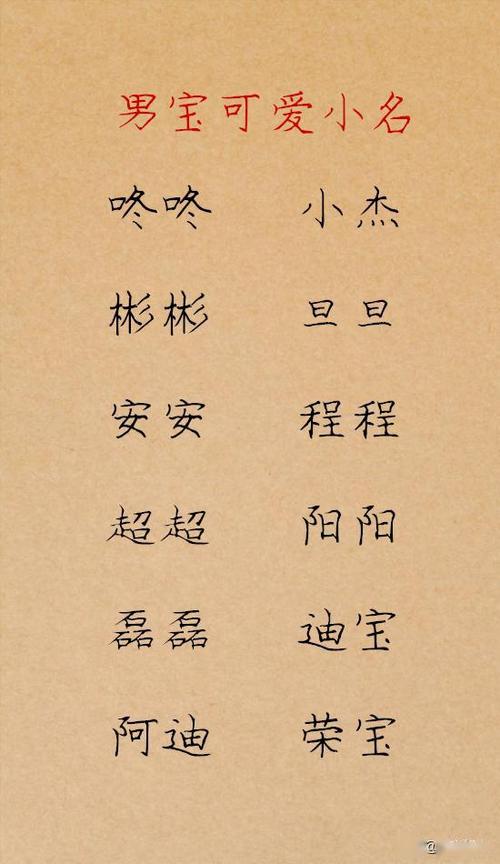 男宝可爱小名
咚咚 小杰
彬彬 旦旦
安安 程程
超超 阳阳
磊磊 迪宝
阿迪 荣宝
@